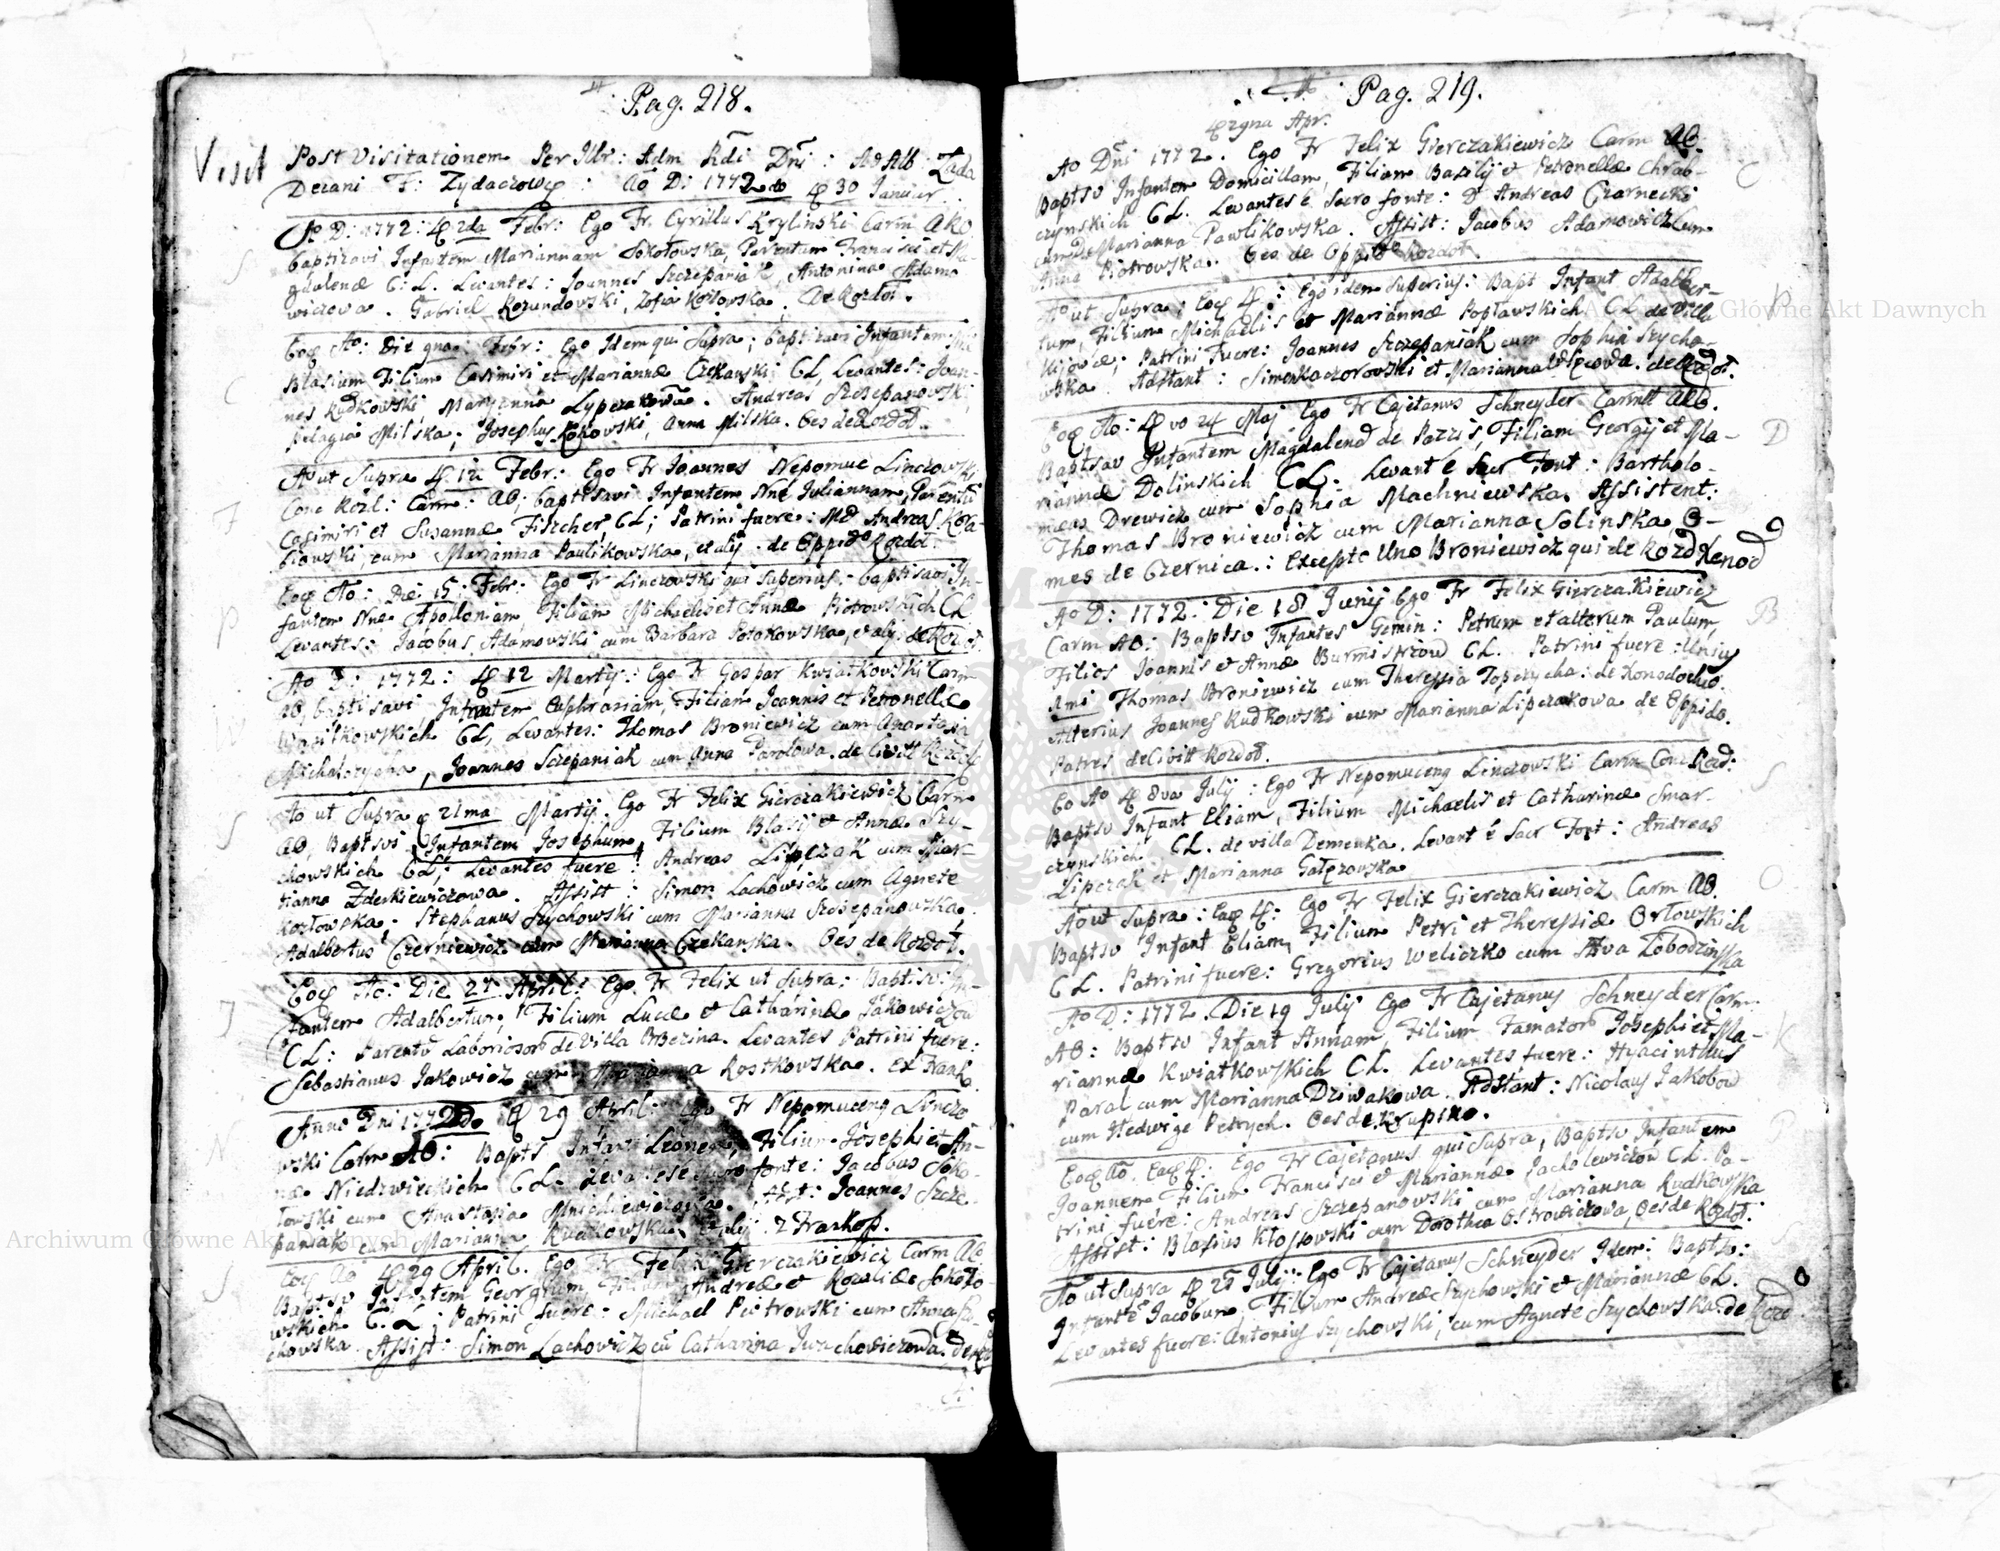 Pag. 218.
Visit Post Visitationem Per Illr: Adm Rdi Dni: Ad Alb: Lada
Decani F: Zydaczow: Ao D: 1772do 30 Januar
Ao D: 1772: 2da Febr: Ego Fr Cyrillus Krylinski Carm AO
baptizavi Infantem Mariannam Sokołowska, Parentum Francisci et Ma-
gdalenæ C: L. Levantes: Joannes Szczepaniak, Antonina Adamo
wiczowa. Gabriel Rozundowski, Zofia Kozłowska, De Rozdoł.
Eoq Ao: Die 9na: Febr: Ego Idem qui Supra; baptizavi Infantem
Blasium Filium Casimiri et Mariannæ Czekanski CL, Levantes: Joan-
nes Rudkowski, Maryanna Lypczakowa. Andreas Szczepanowski
Pelagia Milska; Josephus Kokowski, Anna Milska. Oes de Rozdoł.
Ao ut Supra 12 Febr: Ego Fr Joannes Nepomuc Linczowski
Conc Rozl: Carm: AO; baptisavi Infantem Nne Juliannam, Parentu
Casimiri et Susannæ Fiszcher, CL; Patrini fuere: MD Andreas Kora-
siowski, cum Marianna Paulikowska, et alij. de Oppido Rozdoł.
Eoq Ao: Die 15: Febr: Ego Fr Linczowski qui Superius: baptisavi In-
fantem Nne Apolloniam, Filiam Michaelis et Annæ Piotrowskich CL
Levantes: Jacobus Adamowski cum Barbara Potokowska, et alij de Rozd:
Ao D: 1772: 12 Martij: Ego Fr Gaspar Kwiatkowski Carm
AO, baptisavi Infantem Euphrasiam, Filiam Joannis et Petronellæ
Wasilkowskich CL, Levantes: Thomas Broniewicz cum Anastasia
Michalczycha, Joannes Sczepaniak cum Anna Parolowa. de Civitt Rozdoł
Ao ut Supra 21ma Martij: Ego Fr Felix Gierczakiewicz Carm
AO, Baptsvi Infantem Josephum, Filium Blasij et Annæ Szy-
chowskich CL; Levantes fuere: Andreas Lipczak cum Mar-
rianna Zderkiewiczowa. Assist: Simon Lachowicz cum Agnete
Kozłowska; Stephanus Szychowski cum Marianna Szczepanowska,
Adalbertus Czerniewicz cum Marianna Czekanska. Oes de Rozdoł.
Eoq Ao: Die 21 April: Ego Fr Felix ut Supra: Baptsv: In-
fantem Adalbertum, Filium Lucæ et Catharinæ Jakowiczow
CL: Parentu Laboriosor de Villa Brzezina. Levantes Patrini fuere:
Sebastianus Jakowicz cum Marianna Rostkowska. Ex Frank
Anno Dni 1772do 29 April: Ego Fr Nepomuceng Linczo
wski Carm AO: Bapts Infant Leonem, Filium Josephi et An-
næ Niedzwieckich CL. Levantes e Sacro fonte: Jacobus Soko-
łowski cum Anastasia Asst: Joannes Szcze-
paniak cum Marianna Rudkowska, et alij: z Frankop.
Eoq Ao 29 April. Ego Fr Felix Gierczakiewicz Carm AO
Baptsv Infantem Georgium, Filium Andreæ et Rozaliæ Sokoło-
wskich C: L; Patrini fuere: Michael Piotrowski cum Anna Szy-
chowska Assist: Simon Lachowicz cu Catharina Iwachowiczowa. de Roz
Pag. 219.
29gna Apr.
Ao Dni 1772. Ego Fr Felix Gierczakiewicz Carm AO.
Baptsv Infantem Domicillam, Filiam Basilij et Petronellæ Chrab-
czynskich CL. Levantes e Sacro fonte: D Andreas Czarnecki
cum D Marianna Pawlikowska. Assist: Jacobus Adamowicz cum
Anna Piotrowska. Oes de Oppido Rozdoł
Ao ut Supra; Eoq: Ego idem Superius: Bapt Infant Adalber-
tum, Filium Michaelis et Mariannæ Popławskich CL de Villa
Kijowæ; Patrini fuere: Joannes Szczepaniak cum Sophia Szycho-
wska. Adstant: Simon Kaczorowski et Marianna de Rozdoł.
Eoq Ao: vo 24 Maj Ego Fr Cajetanus Schneyder Carmt AO.
Baptsav Infantem Magdalenã de Pazzis, Filiam Georgij et Ma-
riannæ Dolinskich CL. Levant é Sacr Font: Bartholo-
mæus Drewicz cum Sophia Machniewska. Assistent:
Thomas Broniewicz cum Marianna Solinska O-
mes de Czernica.: Excepto Uno Broniewicz qui de Rozd Xenod
Ao D: 1772: Die 18 Junij Ego Fr Felix Gierczakiewicz
Carm AO: Baptsv Infantes Gemin: Petrum et alterum Paulum,
Filios Joannis et Annæ Burmistrzow CL. Patrini fuere: Unius
1mi Thomas Broniewicz cum Theressia Topczycha: de Xenodochio.
Alterius Joannes Rudkowski cum Marianna Lipczakowa de Oppido.
Patres de Civitt Rozdoł.
Eo Ao 8va Julij: Ego Fr Nepomuceng Linczowski Carm Conc Rozd:
Baptsv Infant Eliam, Filium Michaelis et Catharinæ Smar-
czynskich CL. de villa Demenka. Levant é Sacr Font: Andreas
Lipczak et Marianna Gałęzowska
Ao ut Supra: Eaq: Ego Fr Felix Gierczakiewicz Carm AO.
Baptsv Infant Eliam, Filium Petri et Theressiæ Orłowskich
CL. Patrini fuere: Gregorius Weliczko cum Ewa Łobodzinska
Ao D: 1772. Die 19 Julij Ego Fr Cajetanus Schneyder Carm
AO: Baptsv Infant Annam, Filium Famator Josephi et Ma-
riannæ Kwiatkowskich CL. Levantes fuere: Hyacinthus
Paral cum Marianna Dziwakowa. Adstant: Nicolaus Jakobow
cum Hedwige Petrych. Oes de Krupsko.
Eoq Ao. Eaq: Ego Fr Cajetanus qui Supra, Baptsv Infantem
Joannem Filium Francisci et Mariannæ Jacholewiczow CL. Pa-
trini fuere: Andreas Szczepanowski cum Marianna Rudkowska
Assist: Blasius Kłossowski cum Dorothea Ostrowiczowa, Oes de Rozdoł.
Ao ut Supra 25 Julij: Ego Fr Cajetanus Schneyder Idem: Baptsv:
Infantē Jacobum Filium Andreæ Szychowski et Mariannæ CL.
Levantes fuere: Antonius Szychowski, cum Agnete Szychowska. de Rozd
Archiwum Główne Akt Dawnych